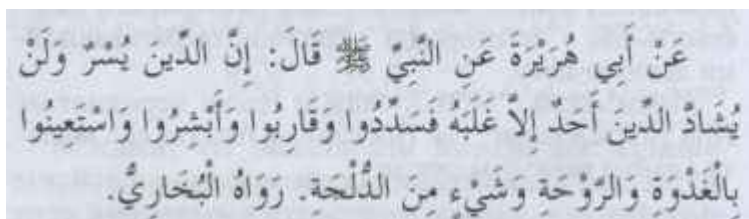 عَنْ أَبِي هُرَيْرَةَ عَنِ النَّبِيِّ ﷺ قَالَ: إِنَّ الدِّينَ يُسْرٌ وَلَنْ
يُشَادَّ الدِّينَ أَحَدٌ إِلاَّ غَلَبَهُ فَسَدِّدُوا وَقَارِبُوا وَأَبْشِرُوا وَاسْتَعِينُوا
بِالْغَدْوَةِ وَالرَّوْحَةِ وَشَيْءٍ مِنَ الدُّلْجَةِ. رَوَاهُ الْبُخَارِيُّ.